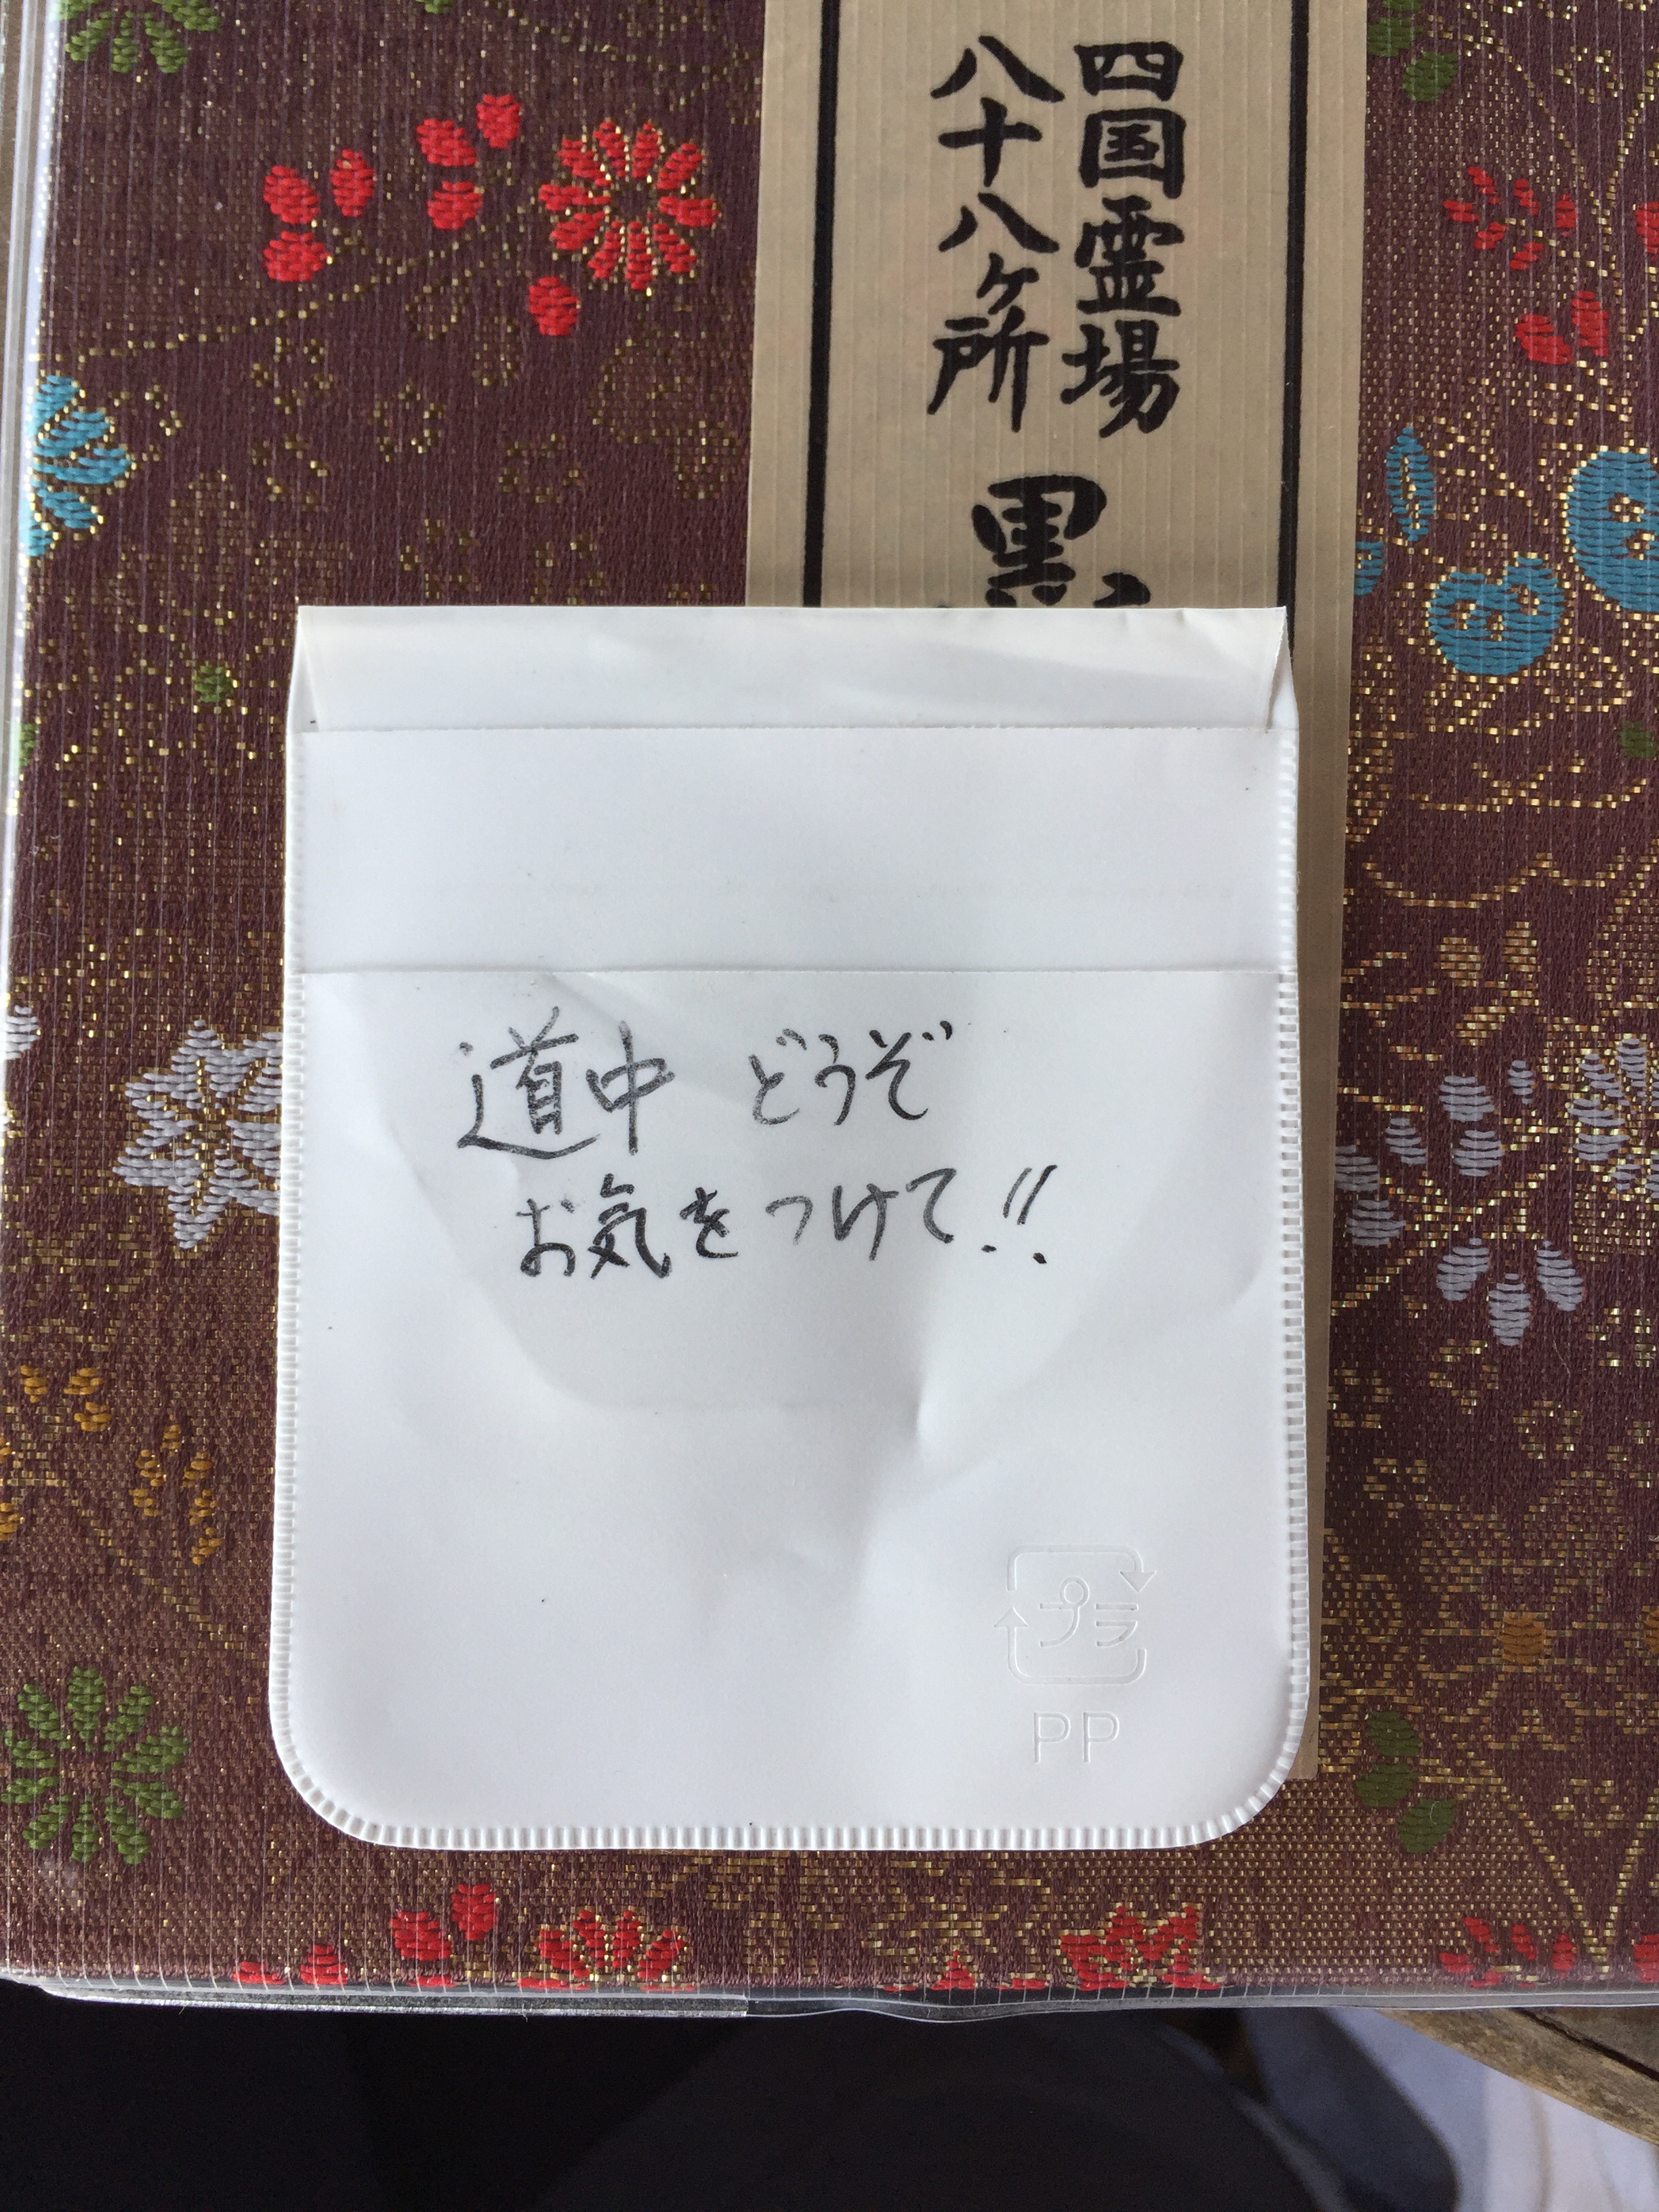 四国霊場
八十八ヶ所
黒
道中 どうぞ
お気をつけて!!
プラ
PP